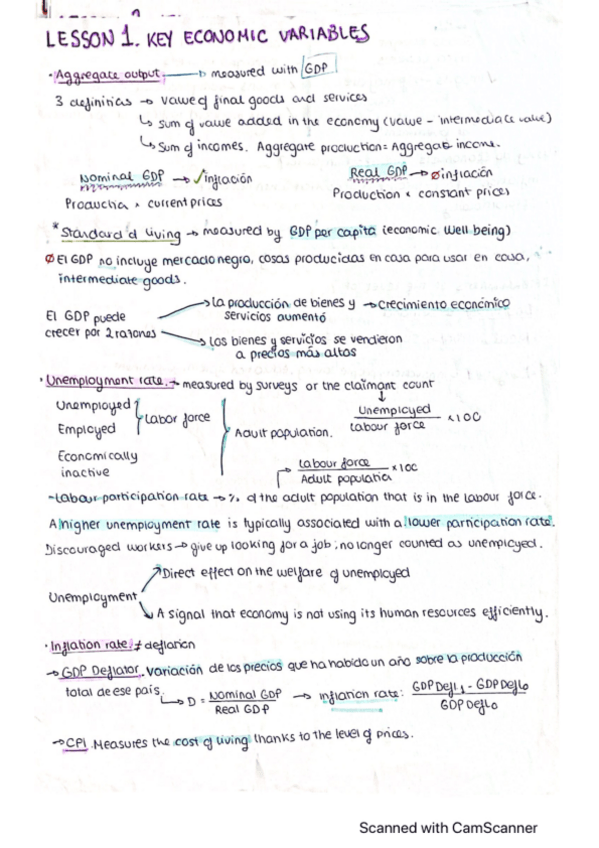 LESSON 1. KEY ECONOMIC VARIABLES
· Aggregate output → measured with GDP
3 definitions → value of final goods and services
↳ sum of value added in the economy (value - intermediate value)
↳ Sum of incomes. Aggregate production = Aggregate income.
Nominal GDP → ✓inflación
Real GDP → ∅ inflación
Production × current prices
Production × constant prices
* Standard d living → measured by GDP per capita (economic well being)
∅ El GDP no incluye mercado negro, cosas producidas en casa para usar en casa,
intermediate goods.
El GDP puede crecer por 2 razones
→ La producción de bienes y servicios aumentó → crecimiento económico
→ los bienes y servicios se vendieron a precios más altos
· Unemployment rate → measured by surveys or the claimant count
Unemployed
Employed
} Labor force
Economically inactive
} Adult population.
↓ Unemployed / Labour force × 100
→ Labour force / Adult population × 100
- Labour participation rate → % of the adult population that is in the labour force.
A higher unemployment rate is typically associated with a lower participation rate.
Discouraged workers → give up looking for a job; no longer counted as unemployed.
Unemployment
↗ Direct effect on the welfare of unemployed
↘ A signal that economy is not using its human resources efficiently.
· Inflation rate ≠ deflation
→ GDP Deflator. Variación de los precios que ha habido un año sobre la producción
total de ese país.
↳ D = Nominal GDP / Real GDP → inflation rate: GDP Defl1 - GDP Defl0 / GDP Defl0
→ CPI. Measures the cost of living thanks to the level of prices.
Scanned with CamScanner